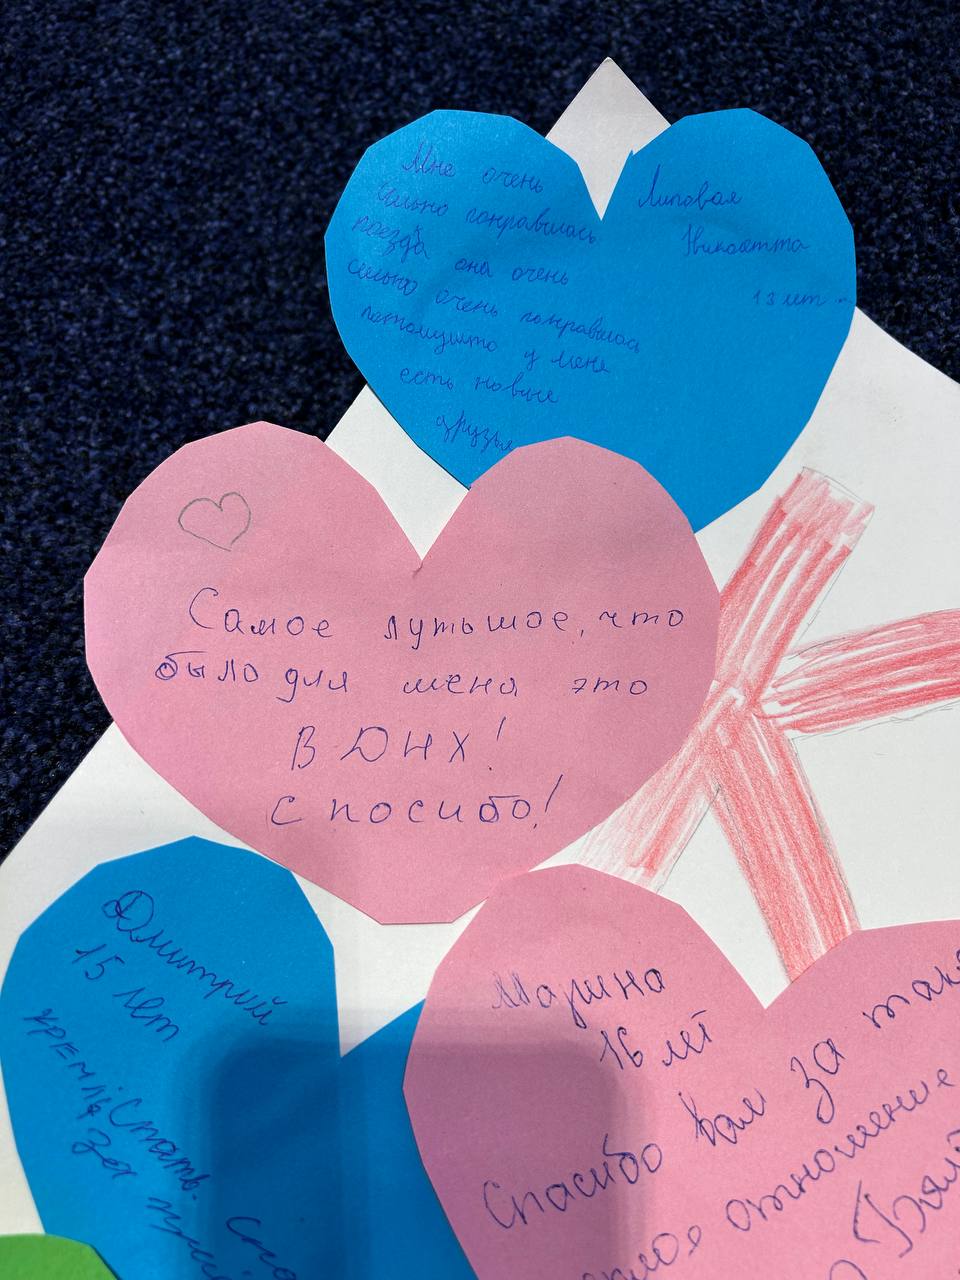 Мне очень
сильно понравилась
поезда она очень
сильно очень понравилось
потомушто у меня
есть новые
друзья
Липовая
13 лет
Самое лутьшое, что
было для меня это
ВДНХ!
спосибо!
Дмитрий
15 лет
кремль, Спать.
за
Марина
16 лет
Спасибо вам за такое
отношение